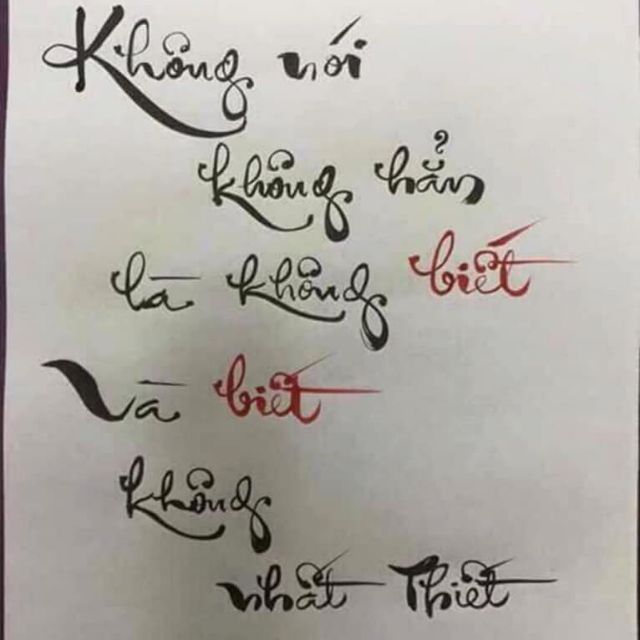 Không nói
không hẳn
là không biết
Và biết
không
nhất Thiết